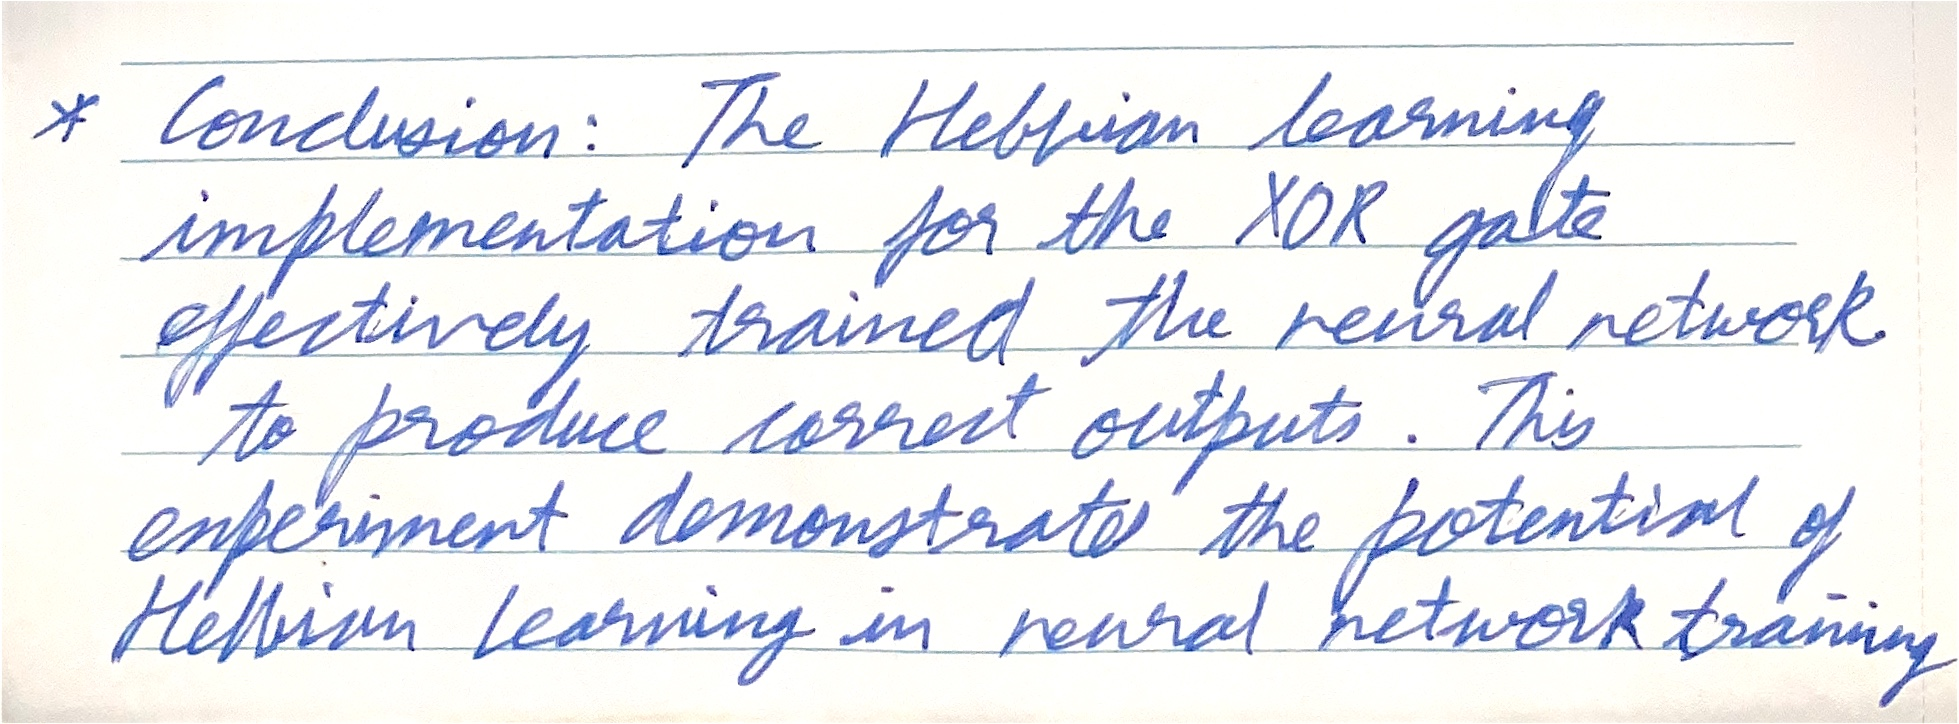 * Conclusion: The Hebbian learning
implementation for the XOR gate
effectively trained the neural network
to produce correct outputs. This
experiment demonstrates the potential of
Hebbian learning in neural network training